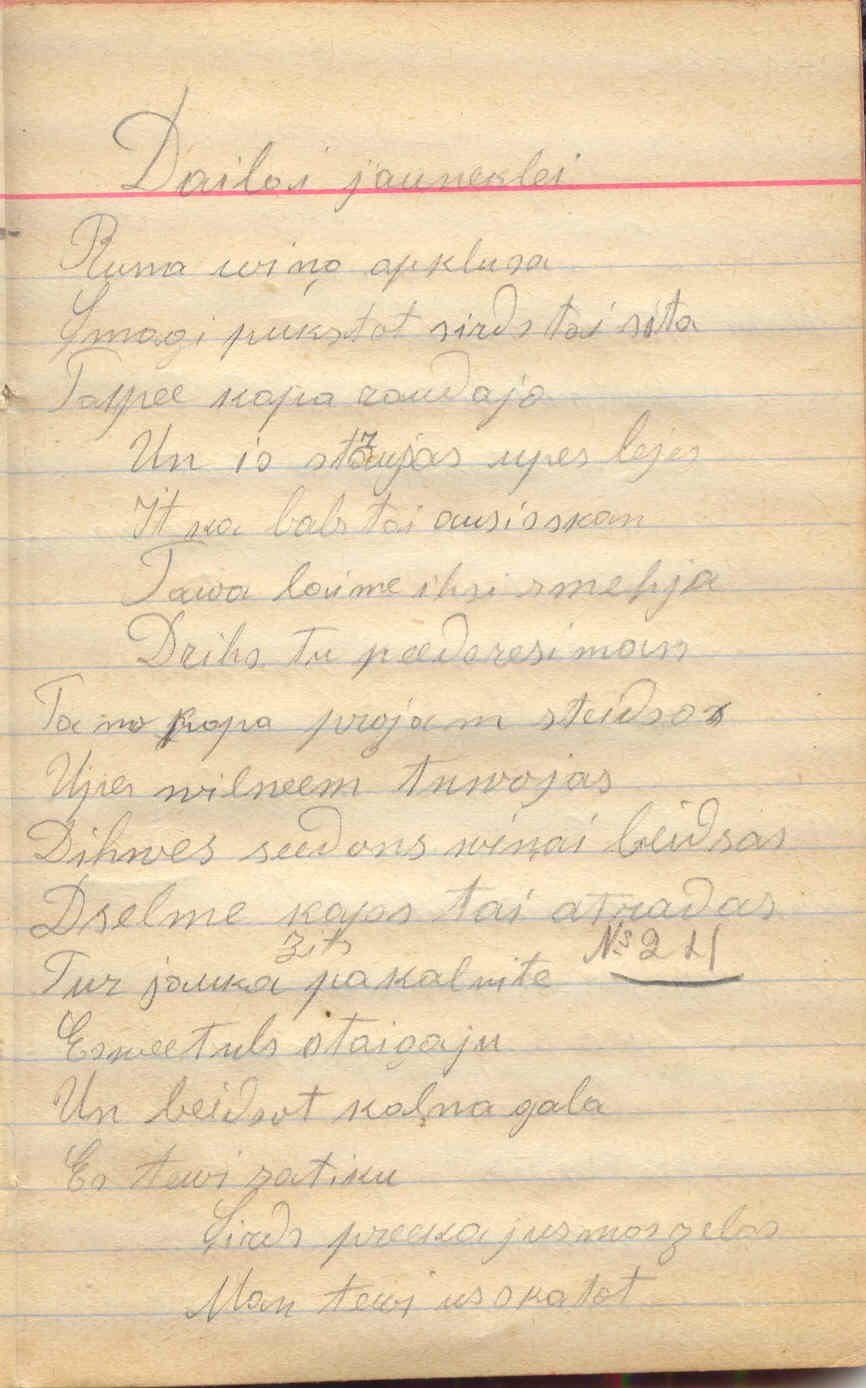 Dailai jauneklei
Runa wiņa apklusa
Smagi pukstot sirds tai sita
Taypee kapa raudajo
Un is straujas upes lejas
It ka balss tai ausis skan
Tawa laime ihsi smehja
Drihs tu peederesi man
Ta no kapa projam steidsas
Upes wilneem tuwojas
Dihwes seedons wiņai beidsas
Dselme kaps tai atradas
№ 24
zits
Tur jauka pakalnite
Es weetuls staigaju
Un beidsot kalna gala
Es tewi satiku
Sirds preeka jusmas zelas
Man tewi usskatot